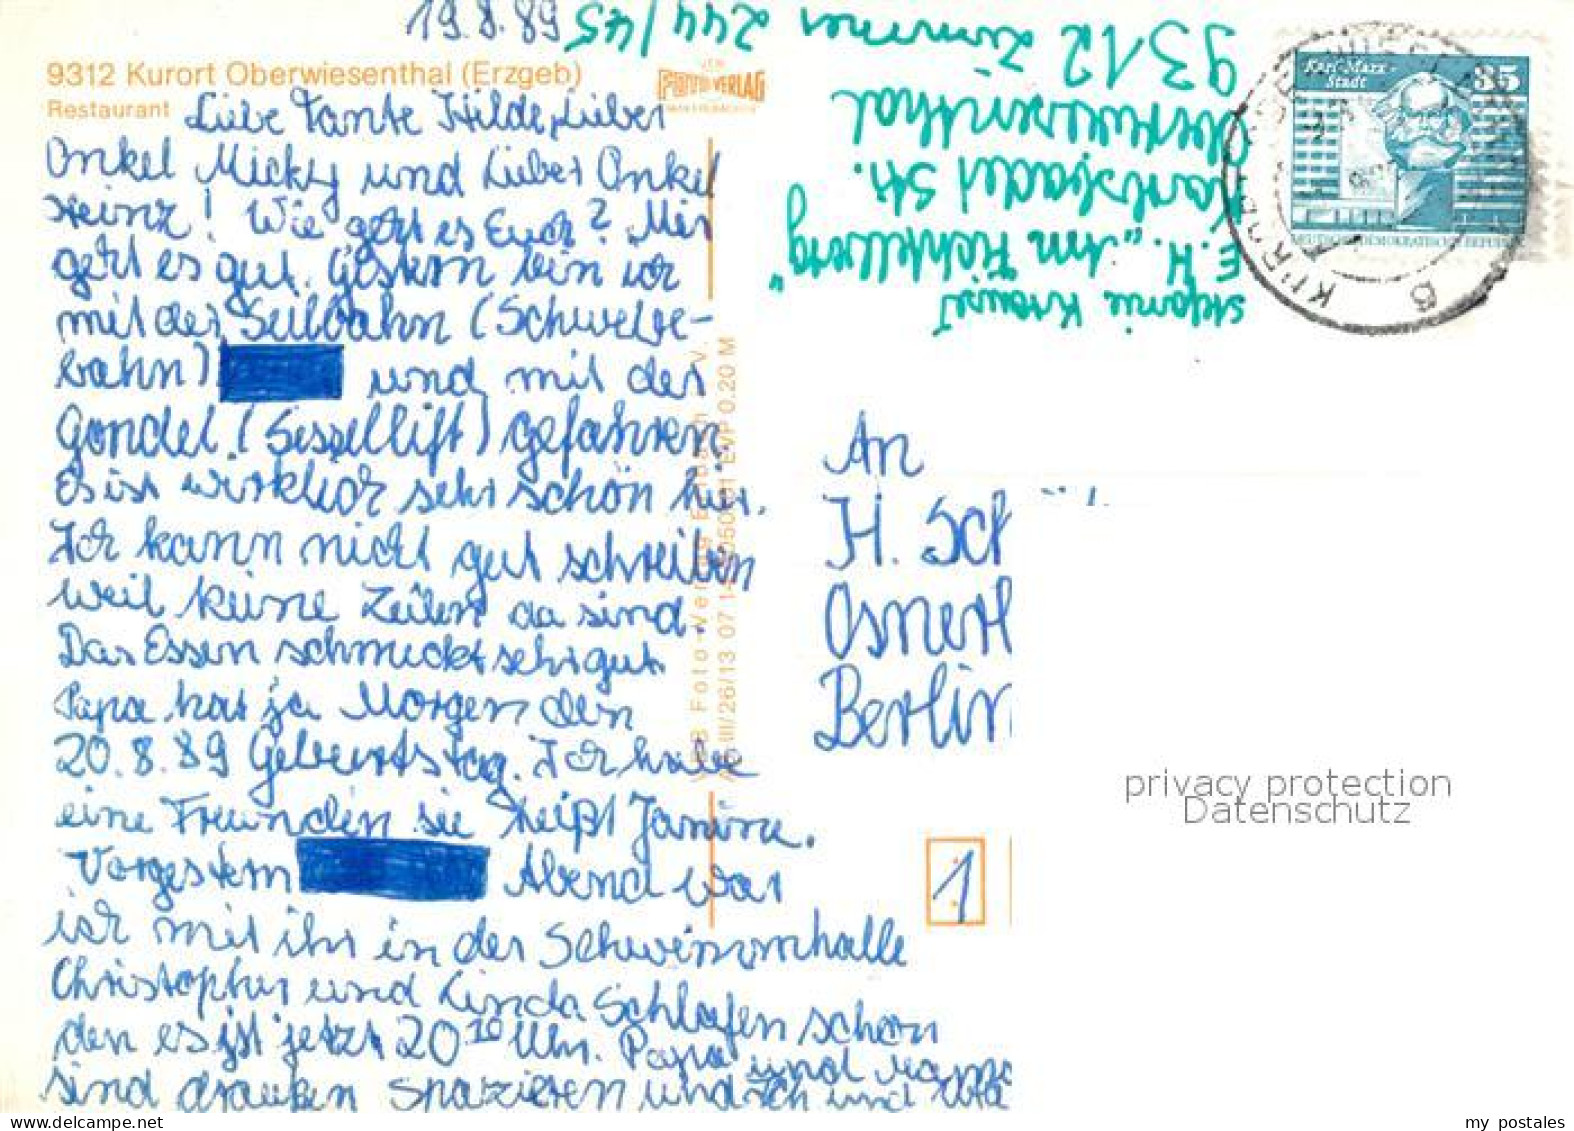 19.8.89
9312 Kurort Oberwiesenthal (Erzgeb)
Restaurant
Liebe Tante Hilde, Lieber
Onkel Micky und Lieber Onkel
Heinz! Wie geht es Euch? Mir
geht es gut. Gestern bin ich
mit der Seilbahn (Schwebe-
bahn) und mit der
Gondel (Sessellift) gefahren.
Es ist wirklich sehr schön hier.
Ich kann nicht gut schreiben
weil keine Zeilen da sind.
Das Essen schmeckt sehr gut
Papa hat ja Morgen den
20.8.89 Geburtstag. Ich habe
eine Freundin sie heißt Janine.
Vorgestern Abend war
ich mit ihr in der Schwimmhalle
Christopher und Linda Schlafen schon
den es ist jetzt 20 10 Uhr. Papa und Mama
sind draußen spazieren und ich und
FOTO-VERLAG
EVP 0.20 M
Stefanie
E.H. "Am Fichtelberg"
Karlsbader Str.
Oberwiesenthal
9312 Zimmer 244/45
Karl-Marx-
Stadt
35
DEUTSCHE DEMOKRATISCHE REPUBLIK
An
H. Sch
Berlin
1
privacy protection
Datenschutz
my postales